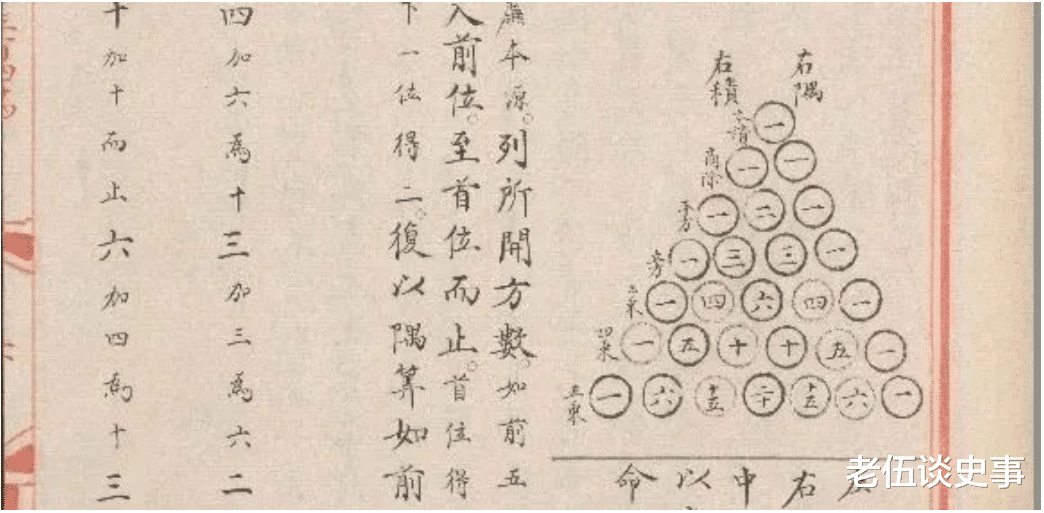 右隅
右積
一
商除 一 一
平方 一 二 一
一 三 三 一
三乘 一 四 六 四 一
四乘 一 五 十 十 五 一
五乘 一 六 十五 二十 十五 六 一
右
中
以
命
廉本源。列所開方數。如前五
入前位。至首位而止。首位得
下一位得二。復以隅筭如前
四加六爲十三加三爲六二
十加十而止六加四爲十三
老伍谈史事